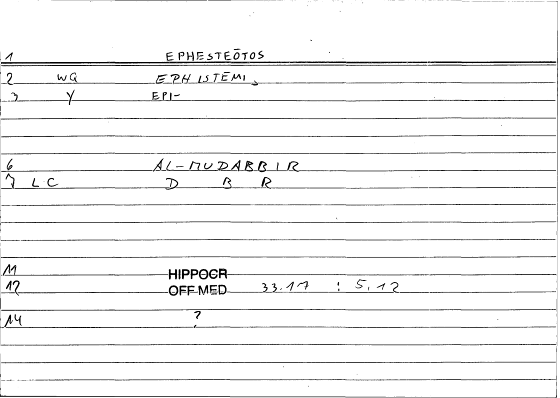 1 EPHESTEŌTOS
2 WQ EPHISTĒMI,
3 Y EPI-
6 AL-MUDABBIR
7 LC D B R
11 HIPPOCR
12 OFF MED 33.17 : 5.12
14 ?